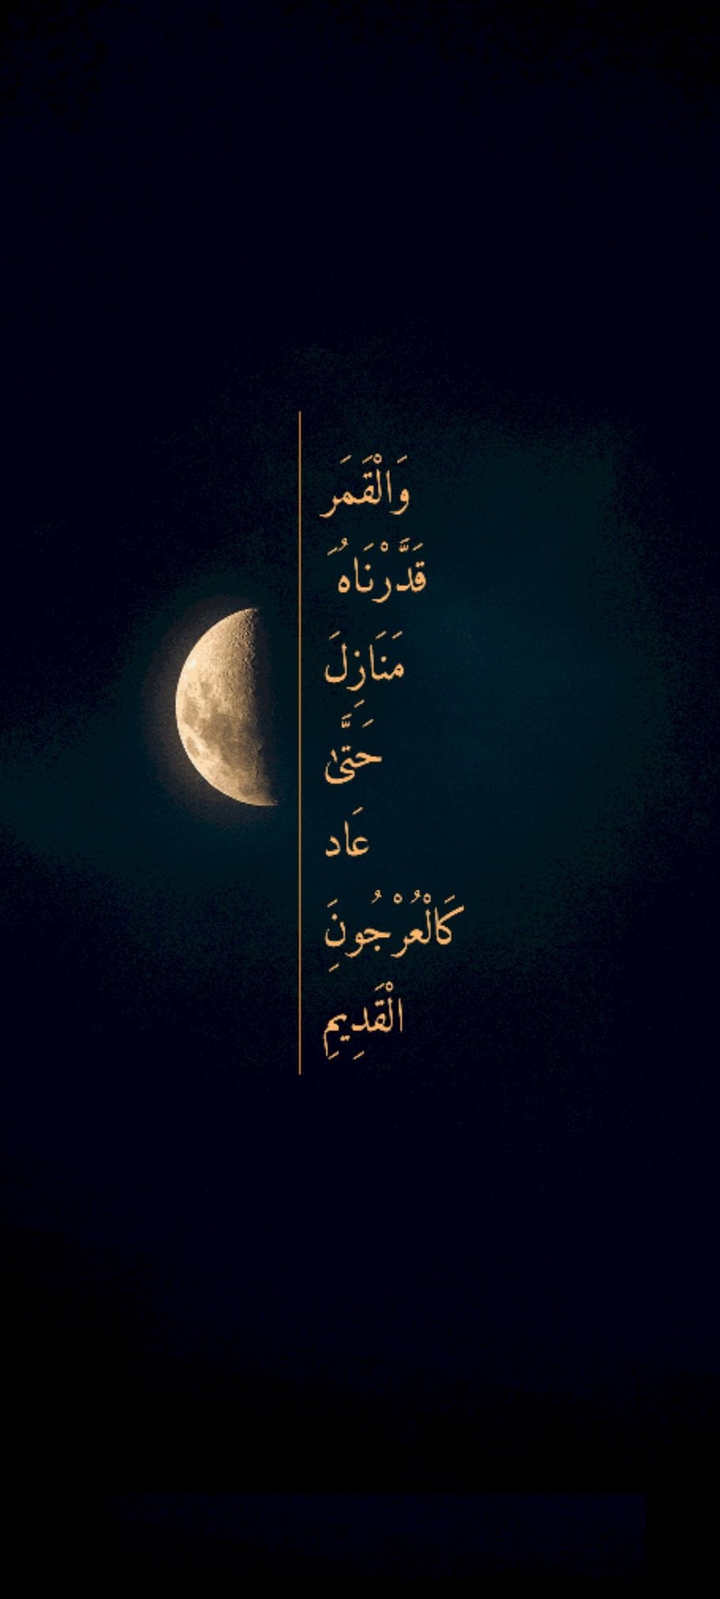 وَالْقَمَر
قَدَّرْنَاهُ َ
مَنَازِلَ
حَتَّىٰ
عَاد
كَالْعُرْجُونَِ
الْقَدِيمِ